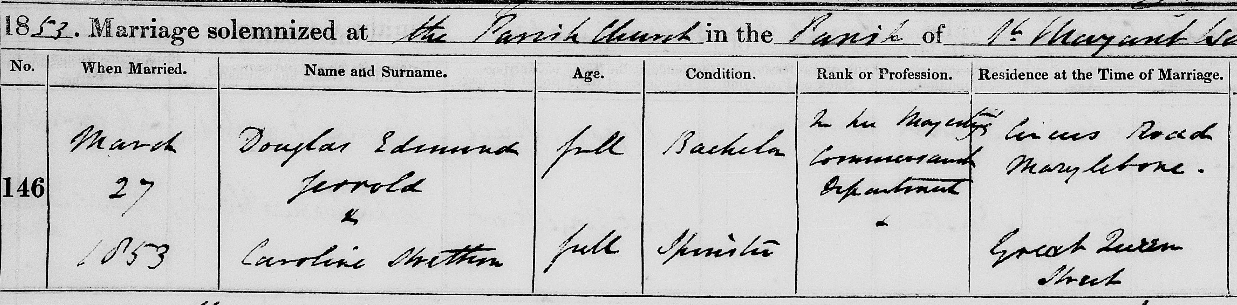 1853. Marriage solemnized at the Parish Church in the Parish of St. Margaret
No. When Married. Name and Surname. Age. Condition. Rank or Profession. Residence at the Time of Marriage.
146
March
27
1853
Douglas Edmund
Jerrold
&
Caroline Stretton
full
full
Bachelor
Spinster
In her Majesty's
Commissariat
Department
Circus Road
Marylebone.
Great Queen
Street